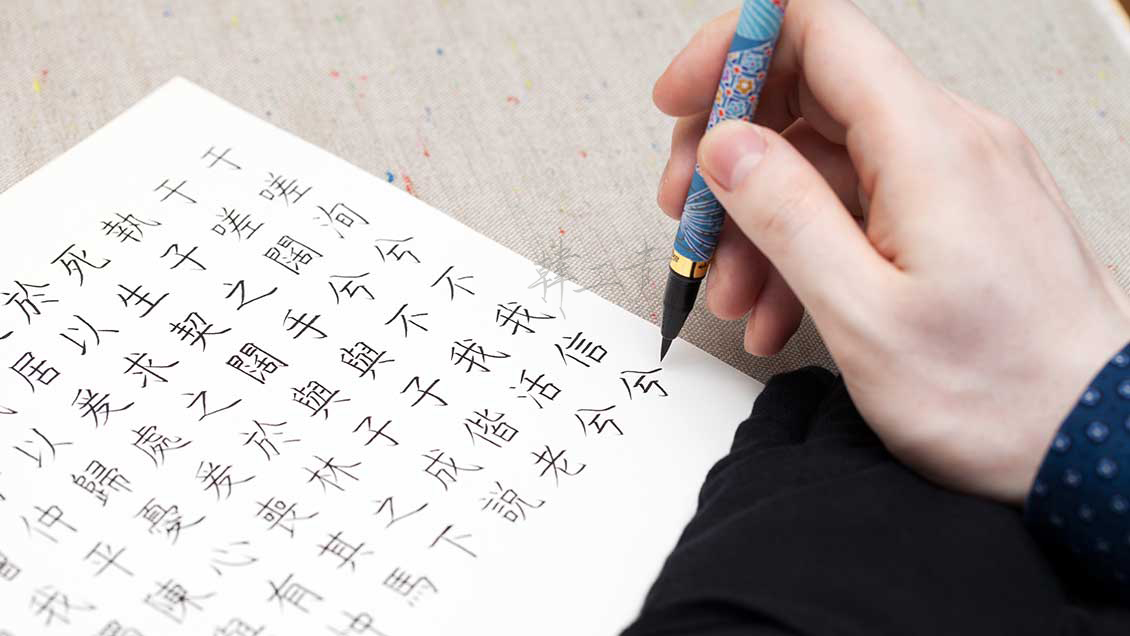 漕我獨
仲平陳與
以歸憂心有忡
居爰處爰喪其馬
於以求之於林之下
死生契闊與子成說
執子之手與子偕老
于嗟闊兮不我活兮
于嗟洵兮不我信兮